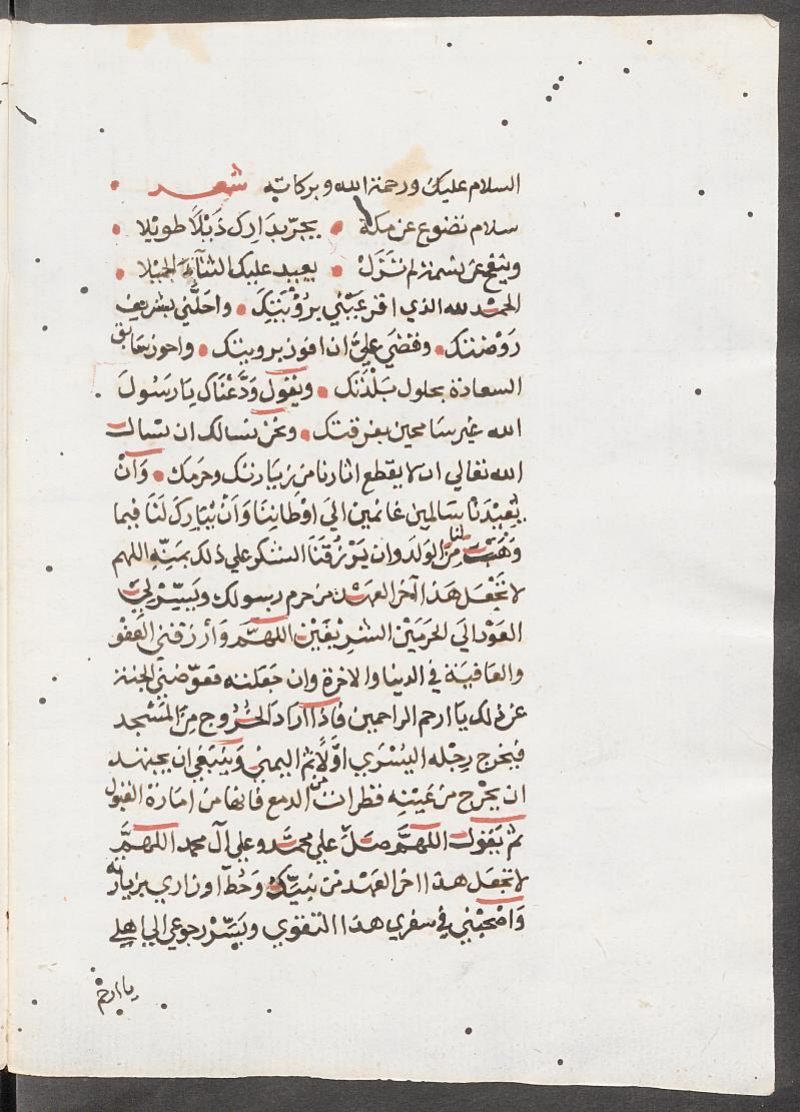 السلام عليك ورحمة الله وبركاته شعر
سلام تضوع عن مكة • يجرّ بدارك ذَيْلًا طويلا
عن نسمة لم تَزَلْ • يعيد عليك الثنآء الجميلا
الحمد لله الذي اقر عَيْني برُؤْيَتِكَ • واحلّني بشريف
رَوْضتك • وقضَي عليَّ ان افوز برويتك • واحوز سابق
السعادة بحلول بَلْدَتك • ويقول وَدَّعْنَاك يَا رَسُولَ
الله غير سامحين بفرقتك • ونحن نسالك ان تسال
الله تعالي ان لا يقطع اثارنا من زيارتك وحرمك • وَاَنْ
يُعِيْدَنَا سَالمِين غانمين الَي اَوْطَانِنَا وَاَنْ يُبَارِكَ لَنَا فيما
وَهَبَ لنا مِنَ الوَلَد وان يَرْزُقَنَا الشكر علي ذلك بمَنِّهِ اللهم
لا تَجْعَل هَذَا آخر العَهْد من حرم رسولك ويَسِّرْ لِيْ
العَوْد الَي الحَرَمَيْن الشرِيْفَيْن اللهُمَّ وَارْزقني العَفْوَ
والعَافيَة في الدنيا والاخرة وان جَعَلته فعَوّضني الجنة
عن ذلك يَا ارحم الراحمين فَاذَا اَرَادَ الخُرُوج مِنَ المَسْجد
فيخرج رِجْله اليُسْري اوَّلًا ثم اليمني وَيَنْبَغي ان يجتهد
ان يَخْرج من عَيْنِه قطرات من الدمع فانها من امَارَة القبول
ثم يَقول اللهُمَّ صَلِّ علي محمّد وعلي آل محمد اللهُمَّ
لا تجعَل هذا اخر العَهْد من نبيِّك وَحُطّ اوزاري بزيارته
وَاصْحَبْني في سفري هذَا التقوي ويَسِّرْ رجوعي الي اهلي
يا ارحم